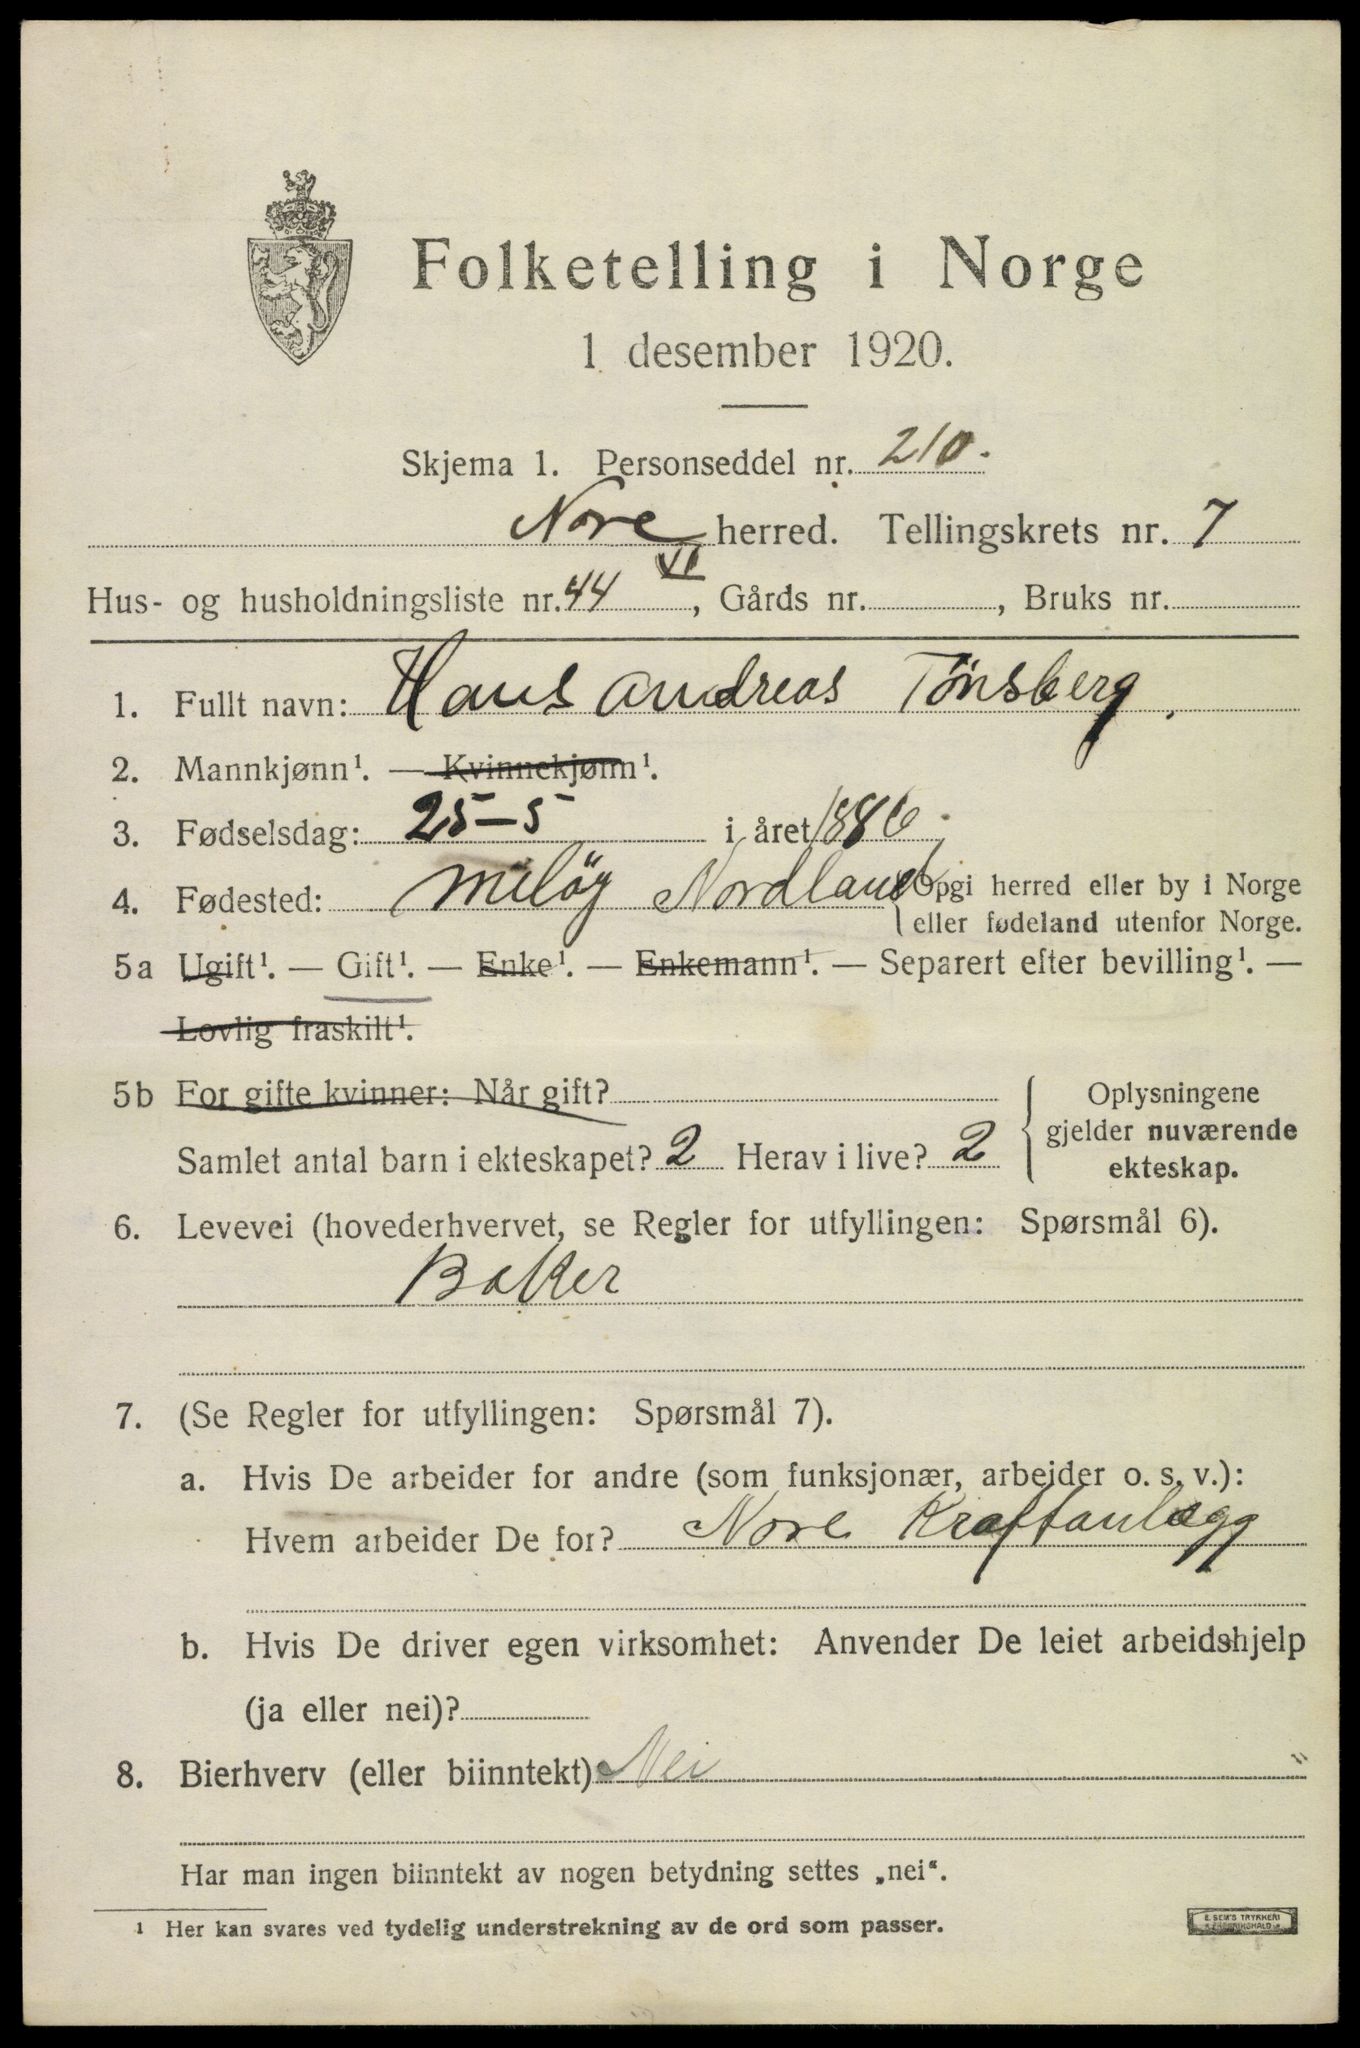 Folketelling i Norge
1 desember 1920.
Skjema 1. Personseddel nr. 210.
Nore herred. Tellingskrets nr. 7
VI
Hus- og husholdningsliste nr. 44, Gårds nr. , Bruks nr.
1. Fullt navn: Hans Andreas Tønsberg.
2. Mannkjønn¹. — Kvinnekjønn¹.
3. Fødselsdag: 25-5 i året 1886.
4. Fødested: Meløy Nordland {Opgi herred eller by i Norge
eller fødeland utenfor Norge.
5a Ugift¹. — Gift¹. — Enke¹. — Enkemann¹. — Separert efter bevilling¹. —
Lovlig fraskilt¹.
5b For gifte kvinner: Når gift?
Samlet antal barn i ekteskapet? 2 Herav i live? 2
Oplysningene
gjelder nuværende
ekteskap.
6. Levevei (hovederhvervet, se Regler for utfyllingen: Spørsmål 6).
Baker
7. (Se Regler for utfyllingen: Spørsmål 7).
a. Hvis De arbeider for andre (som funksjonær, arbeider o. s. v.):
Hvem arbeider De for? Nore Kraftanlægg
b. Hvis De driver egen virksomhet: Anvender De leiet arbeidshjelp
(ja eller nei)?
8. Bierhverv (eller biinntekt) Nei "
Har man ingen biinntekt av nogen betydning settes „nei“.
¹ Her kan svares ved tydelig understrekning av de ord som passer.
E. SEM'S TRYKKERI
FREDRIKSHALD